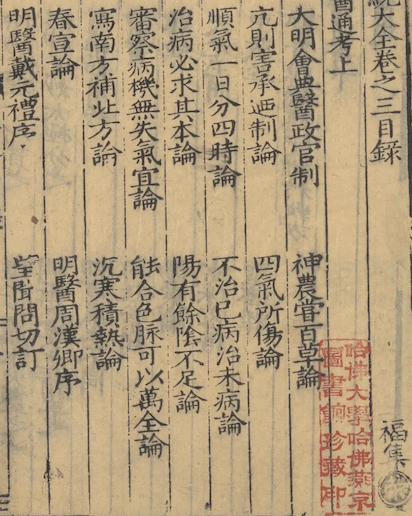 統大全卷之三目錄
福集
醫通考上
大明會典醫政官制
神農嘗百草論
亢則害承廼制論
四氣所傷論
順氣一日分四時論
不治已病治未病論
治病必求其本論
陽有餘陰不足論
審察病機無失氣宜論
能合色脉可以萬全論
瀉南方補北方論
沉寒積熱論
春宣論
明醫周漢卿序
明醫戴元禮序
望聞問切訂
哈佛大學哈佛燕京
圖書館珍藏印